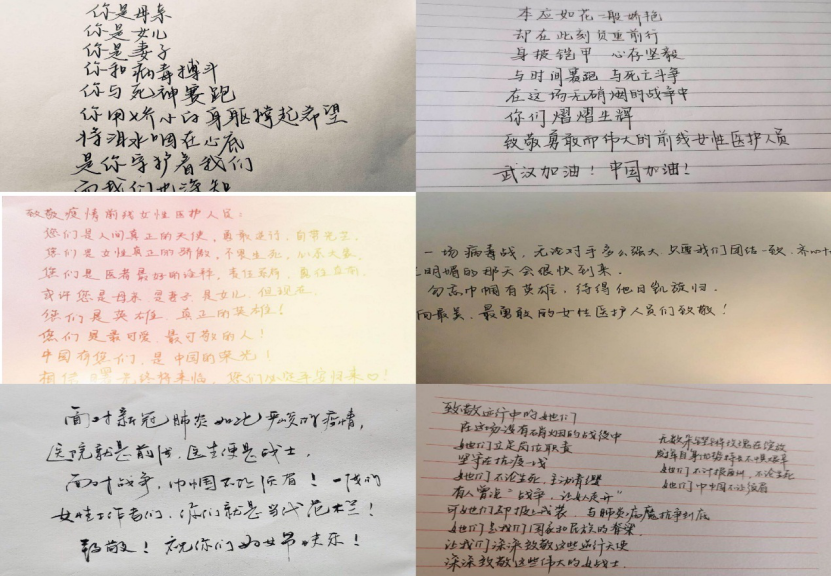 你是母亲
你是女儿
你是妻子
你和病毒搏斗
你与死神赛跑
你用娇小的身躯撑起希望
将泪水咽在心底
是你守护着我们
而我们也深知
本应如花一般娇艳
却在此刻负重前行
身披铠甲 心存坚毅
与时间赛跑 与死亡斗争
在这场无硝烟的战争中
你们熠熠生辉
致敬勇敢而伟大的前线女性医护人员
武汉加油！中国加油！
致敬疫情前线女性医护人员：
您们是人间真正的天使，勇敢逆行，自带光芒。
您们是女性真正的骄傲，不畏生死，
您们是医者最好的诠释，责任在肩，
或许您是母亲 是妻子 是女儿，但现在
您们是英雄，真正的英雄！
您们是最可爱、最可敬的人！
中国有您们，是中国的荣光！
相信 曙光终将来临，您们
一场病毒战，无论对手多么强大，只要我们团结一致，齐心
明媚的那天会很快到来。
勿忘巾帼有英雄，待得他日凯旋归。
向最美、最勇敢的女性医护人员们致敬！
面对新冠肺炎如此严峻的疫情，
医院就是前线，医生便是战士，
面对战争，巾帼不让须眉！一线的
女性工作者们，你们就是当代花木兰！
致敬！祝你们妇女节快乐！
致敬逆行中的她们
在这场没有硝烟的战役中
她们立足岗位职责
坚守在抗疫一线
她们不论生死，主动请缨
有人曾说“战争，让女人走开”
可她们却披上战装，与肺炎病魔抗争到底
她们是我们国家和民族的脊梁
让我们深深致敬这些逆行天使
深深致敬这些伟大的女战士
无数朵铿锵玫瑰在绽放
她们不计报酬，不论生死
她们巾帼不让须眉